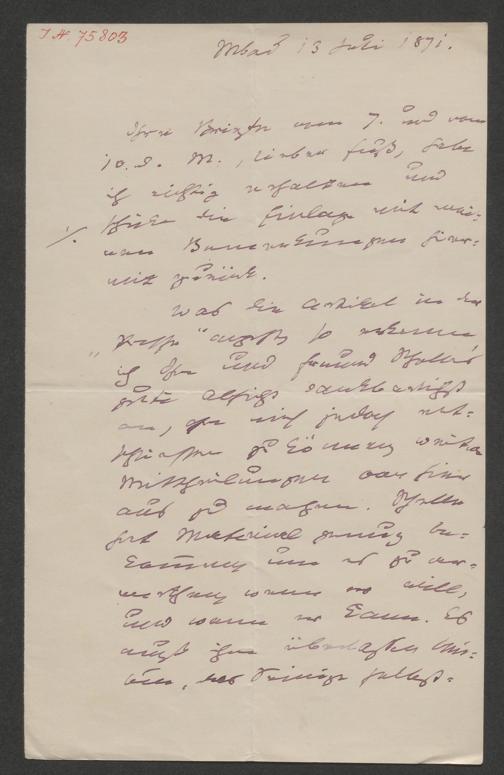 J.N. 75803
13 Juli 1871.
Ihre Briefe vom 7. und vom
10. d. M., lieber Fuß, habe
ich richtig erhalten und
schicke die Einlage mit mei-
nen Bemerkungen hier-
mit zurück.
Was die Artikel in der
"Presse" so erkenne
ich Ihre und Freund
gute Absicht dankbarlichst
an, ohne mich jedoch ent-
schließen zu können weitere
Mittheilungen von hier
aus zu machen.
hat Material genug be-
kommen um es zu ver-
werthen wann er will,
und wann er kann. Es
muß ihm überlassen blei-
ben, das Seinige selbst-